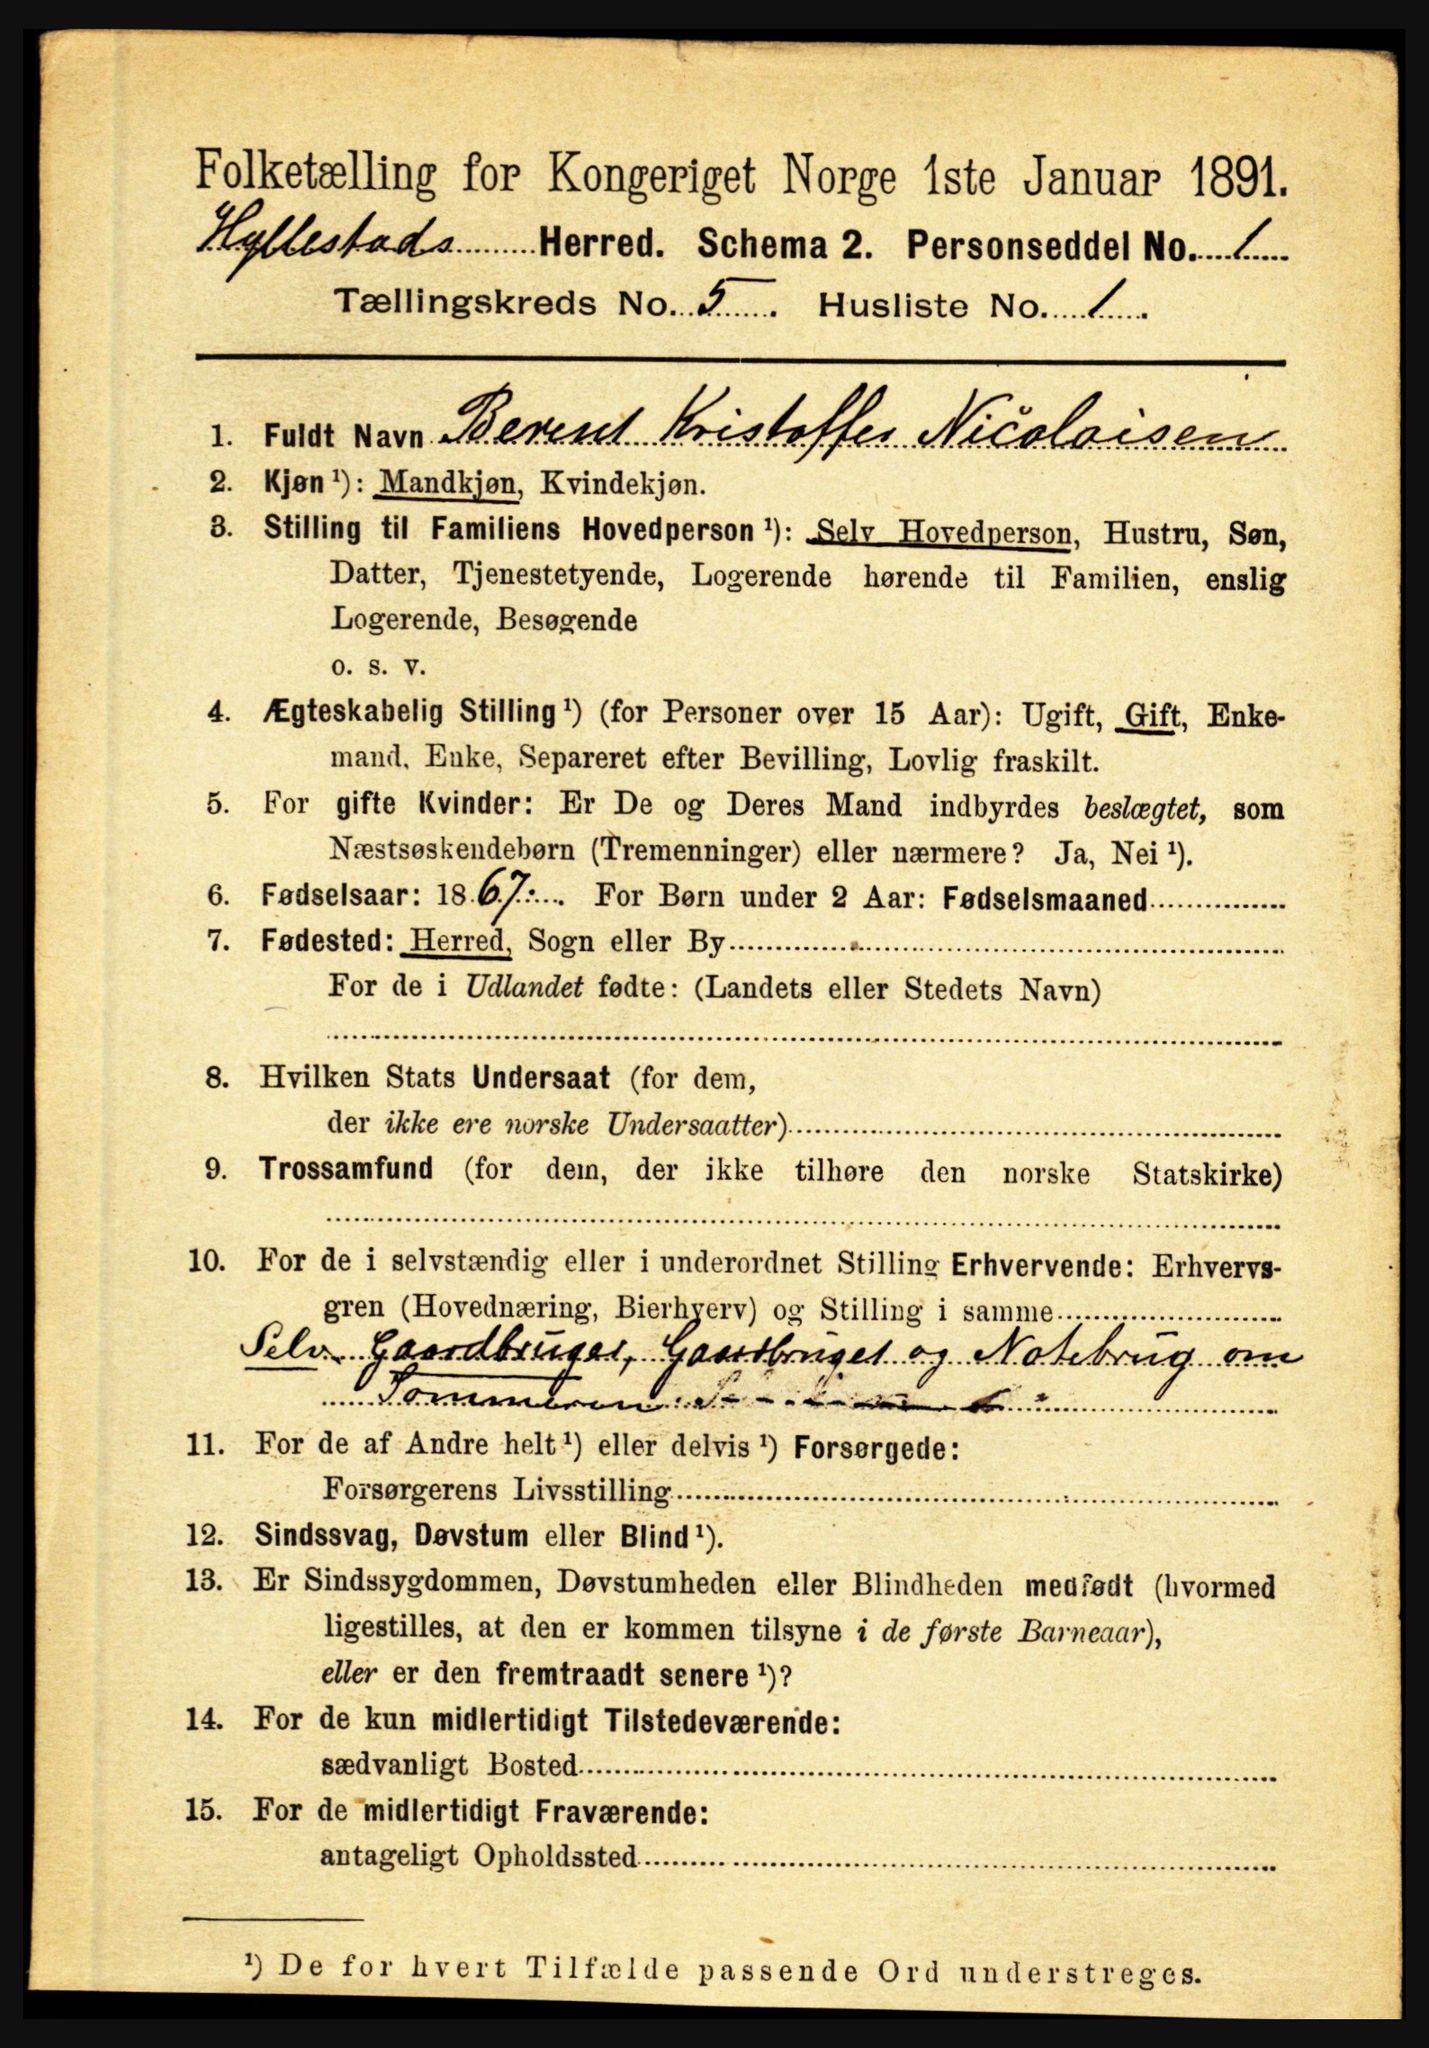 Folketælling for Kongeriget Norge 1ste Januar 1891.
Hyllestads Herred. Schema 2. Personseddel No. 1
Tællingskreds No. 5. Husliste No. 1.
1. Fuldt Navn Berent Kristoffer Nicolaisen
2. Kjøn ¹): Mandkjøn, Kvindekjøn.
3. Stilling til Familiens Hovedperson ¹): Selv Hovedperson, Hustru, Søn,
Datter, Tjenestetyende, Logerende hørende til Familien, enslig
Logerende, Besøgende
o. s. v.
4. Ægteskabelig Stilling ¹) (for Personer over 15 Aar): Ugift, Gift, Enke-
mand, Enke, Separeret efter Bevilling, Lovlig fraskilt.
5. For gifte Kvinder: Er De og Deres Mand indbyrdes beslægtet, som
Næstsøskendebørn (Tremenninger) eller nærmere? Ja, Nei ¹).
6. Fødselsaar: 1867. For Børn under 2 Aar: Fødselsmaaned
7. Fødested: Herred, Sogn eller By
For de i Udlandet fødte: (Landets eller Stedets Navn)
8. Hvilken Stats Undersaat (for dem,
der ikke ere norske Undersaatter)
9. Trossamfund (for dem, der ikke tilhøre den norske Statskirke)
10. For de i selvstændig eller i underordnet Stilling Erhvervende: Erhvervs-
gren (Hovednæring, Bierhverv) og Stilling i samme
Selv. Gaardbruger, Gaardbruget og Notebrug om
Sommeren
11. For de af Andre helt ¹) eller delvis ¹) Forsørgede:
Forsørgerens Livsstilling
12. Sindssvag, Døvstum eller Blind ¹).
13. Er Sindssygdommen, Døvstumheden eller Blindheden medfødt (hvormed
ligestilles, at den er kommen tilsyne i de første Barneaar),
eller er den fremtraadt senere ¹)?
14. For de kun midlertidigt Tilstedeværende:
sædvanligt Bosted
15. For de midlertidigt Fraværende:
antageligt Opholdssted
¹) De for hvert Tilfælde passende Ord understreges.